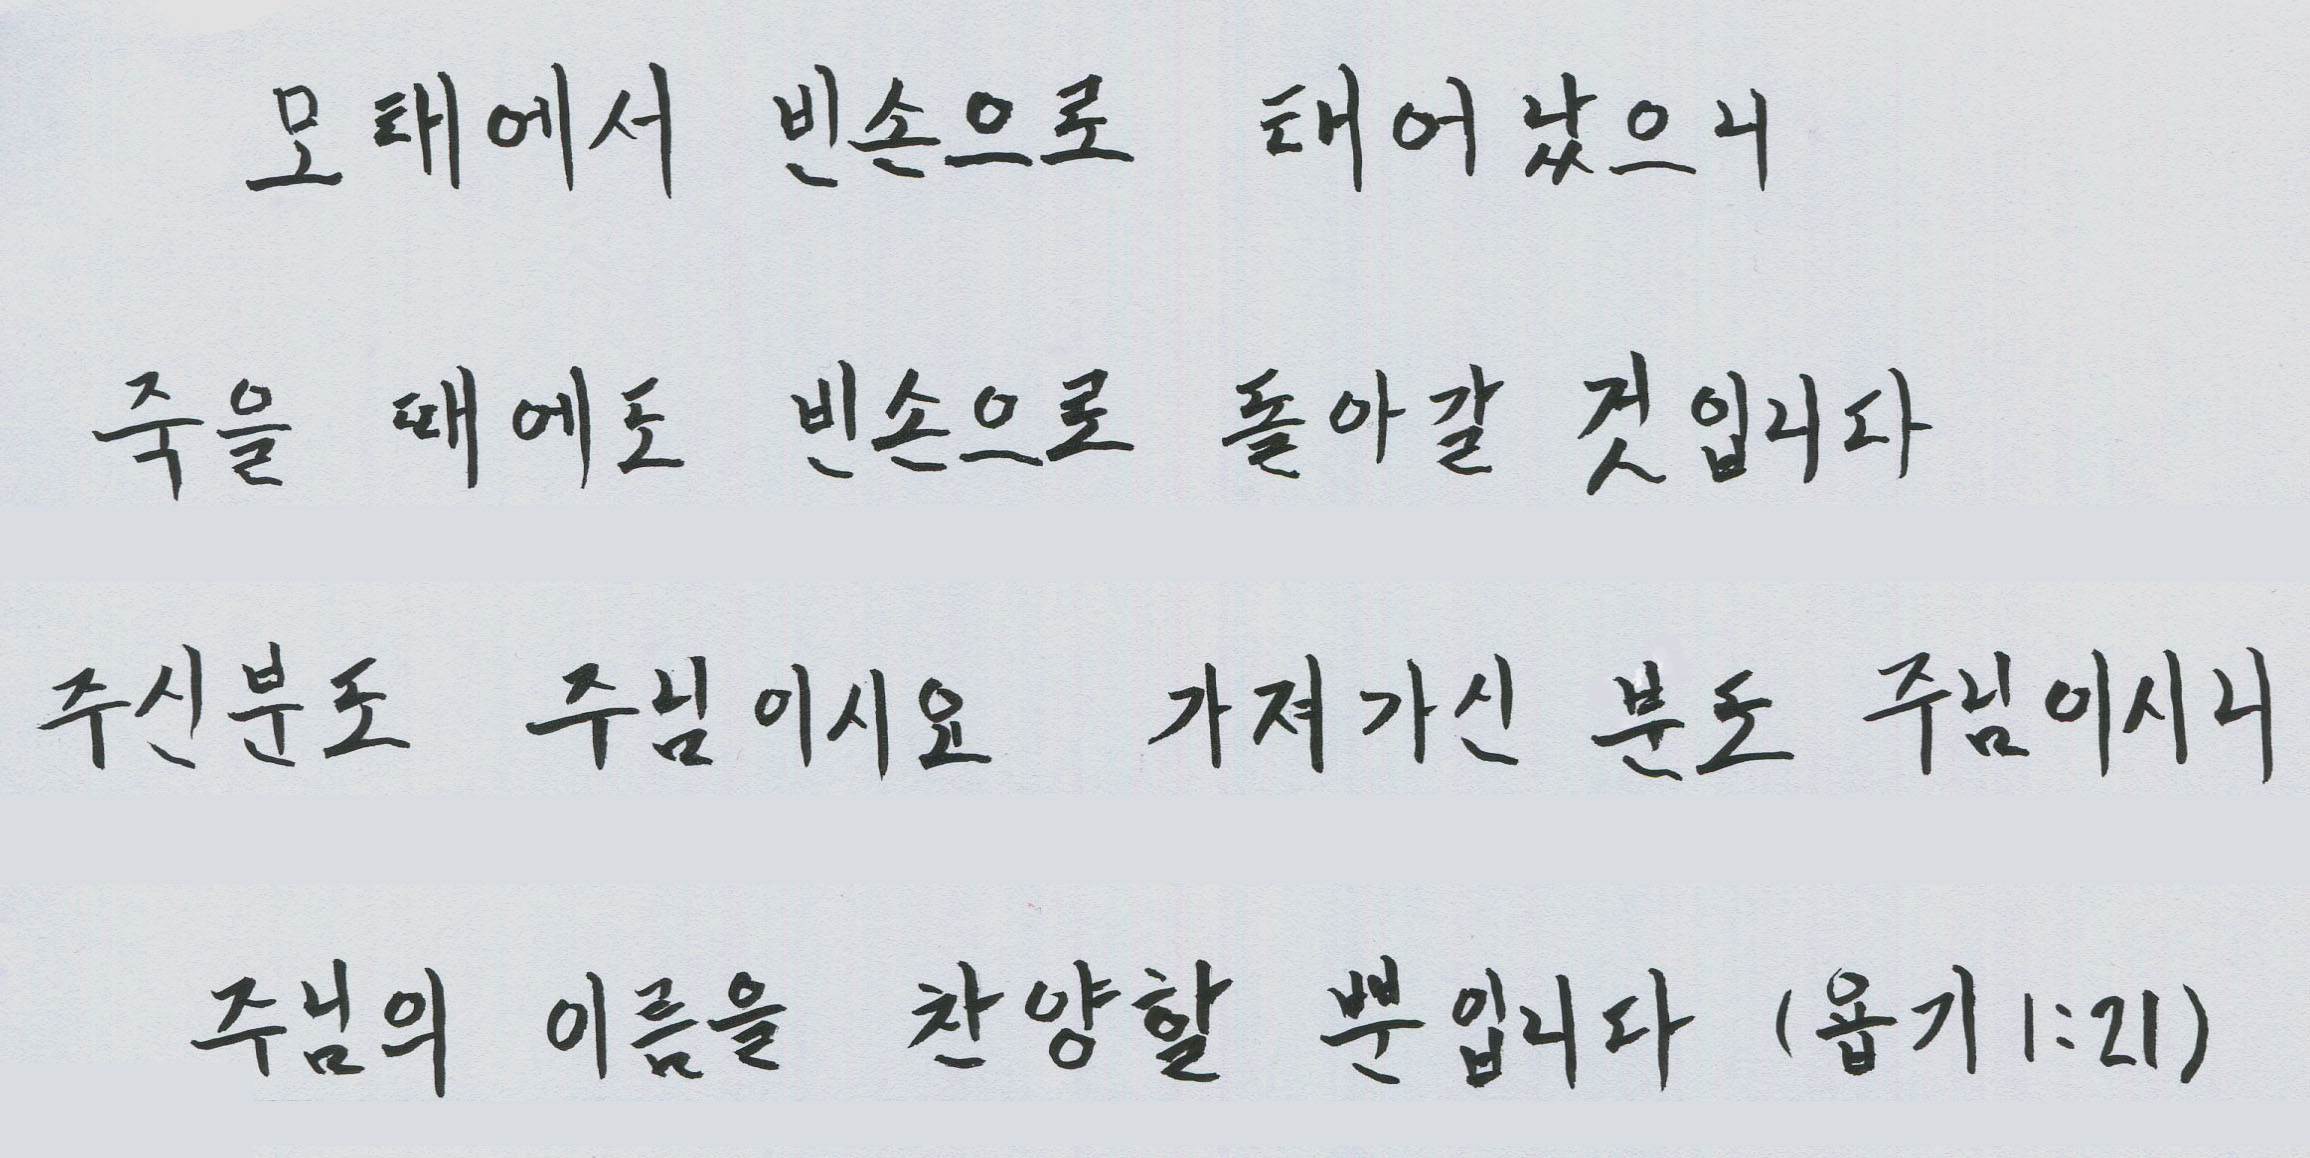 모태에서 빈손으로 태어났으니
죽을 때에도 빈손으로 돌아갈 것입니다
주신분도 주님이시요 가져가신 분도 주님이시니
주님의 이름을 찬양할 뿐입니다 (욥기 1:21)